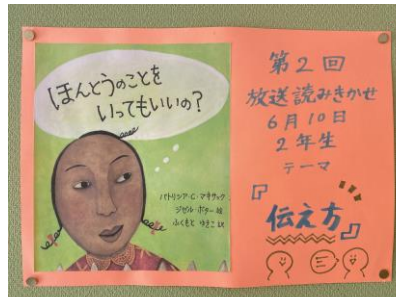 ほんとうのことを
いってもいいの?
パトリシア・C・マキサック
ジゼル・ポター 絵
ふくもと ゆきこ 訳
第2回
放送読みきかせ
6月10日
2年生
テーマ
『伝え方』